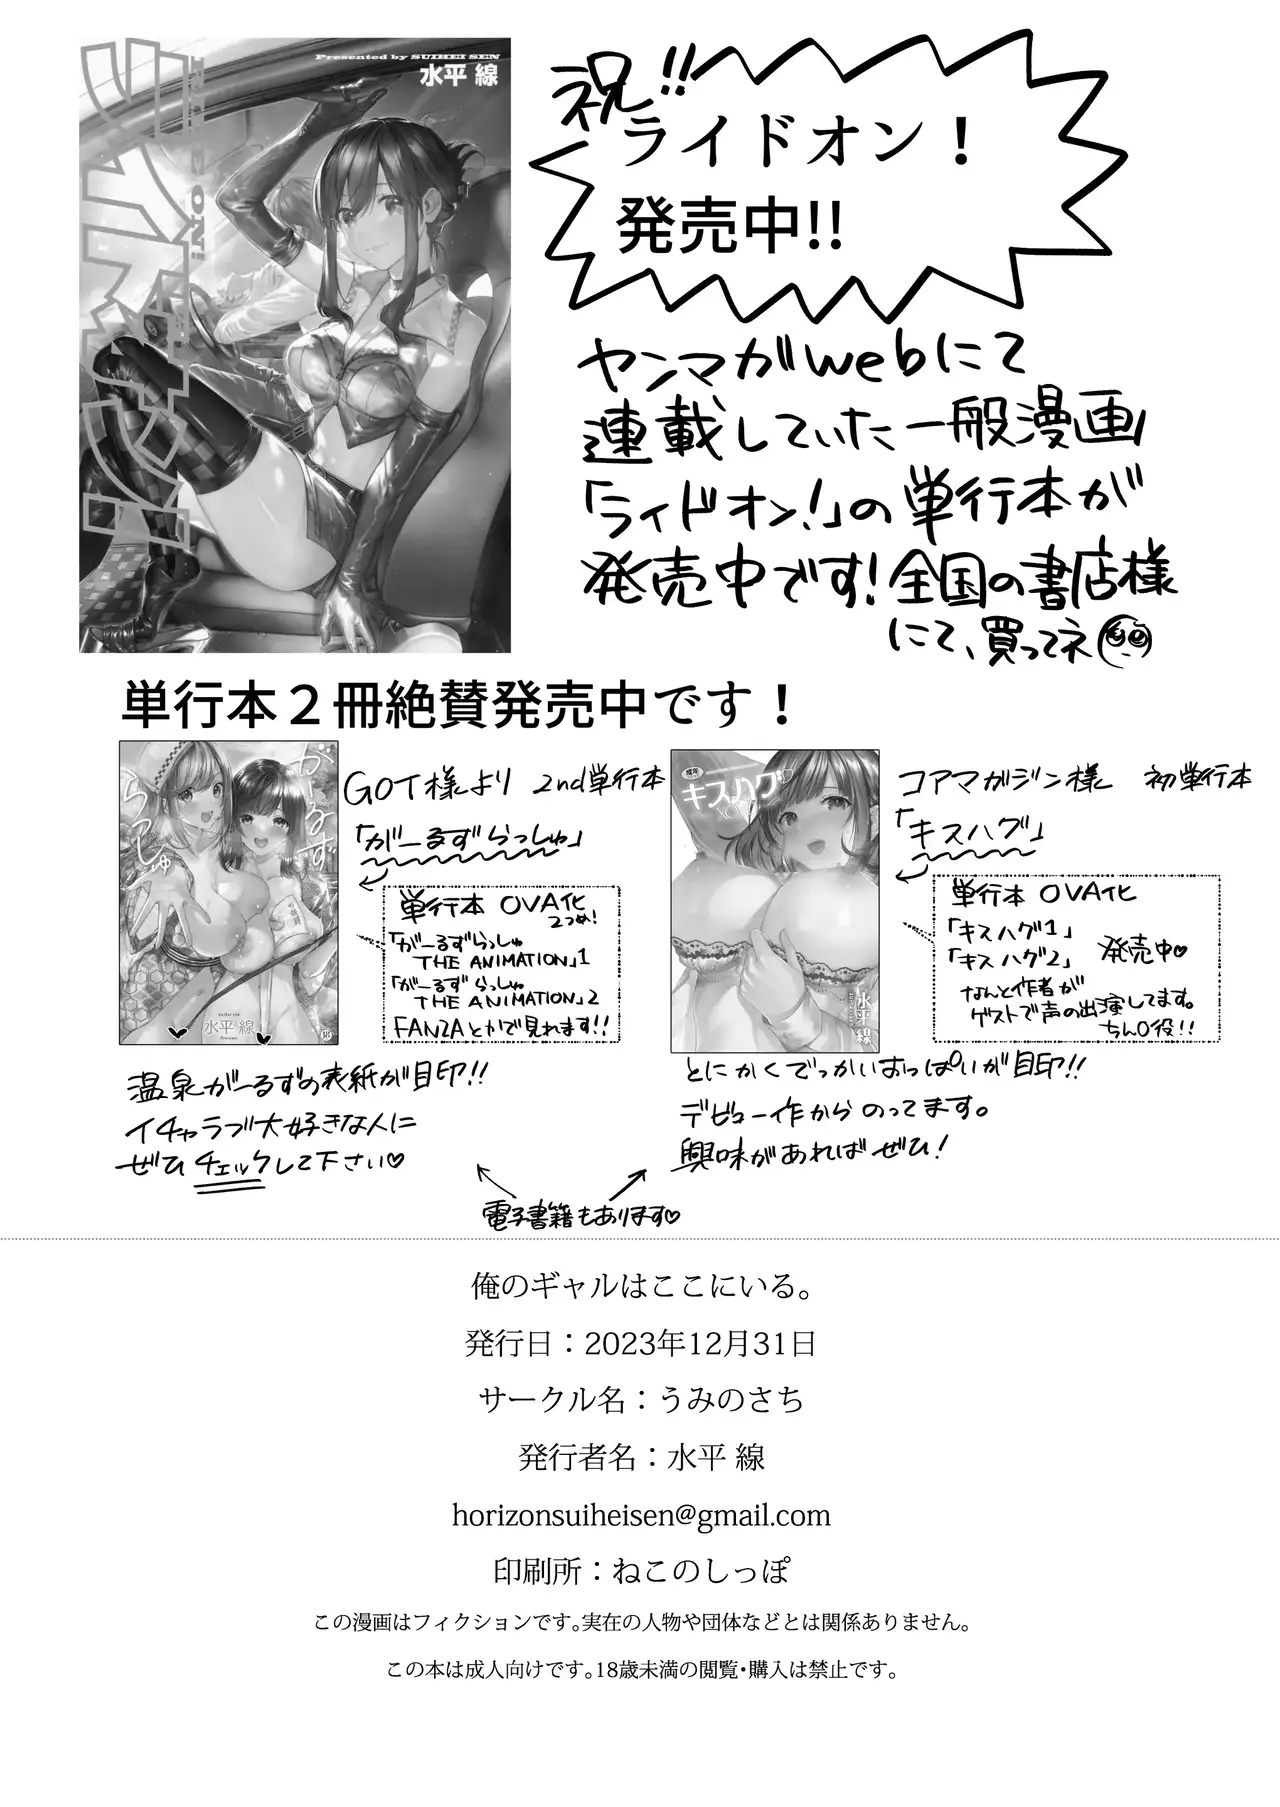 Presented by SUIHEI SEN
水平 線
ライドオン!
RIDE ON!
祝!!
ライドオン！
発売中!!
ヤンマガwebにて
連載していた一般漫画
「ライドオン!」の単行本が
発売中です!全国の書店様
にて、買ってネ
単行本２冊絶賛発売中です！
がーるず
らっしゅ
水平線
GOT様より 2nd単行本
「がーるずらっしゅ」
単行本 OVA化
2つめ!
「がーるずらっしゅ
THE ANIMATION」1
「がーるずらっしゅ
THE ANIMATION」2
FANZAとかで見れます!!
温泉がーるずの表紙が目印!!
イチャラブ大好きな人に
ぜひチェックして下さい♡
成年
キスハグ
水平線
コアマガジン様 初単行本
「キスハグ」
単行本 OVA化
「キスハグ1」
「キスハグ2」 発売中♡
なんと作者が
ゲストで声の出演してます。
ちん〇役!!
とにかくでっかいおっぱいが目印!!
デビュー作からのってます。
興味があればぜひ!
電子書籍もあります♡
俺のギャルはここにいる。
発行日：2023年12月31日
サークル名：うみのさち
発行者名：水平 線
horizonsuiheisen@gmail.com
印刷所：ねこのしっぽ
この漫画はフィクションです。実在の人物や団体などとは関係ありません。
この本は成人向けです。18歳未満の閲覧・購入は禁止です。